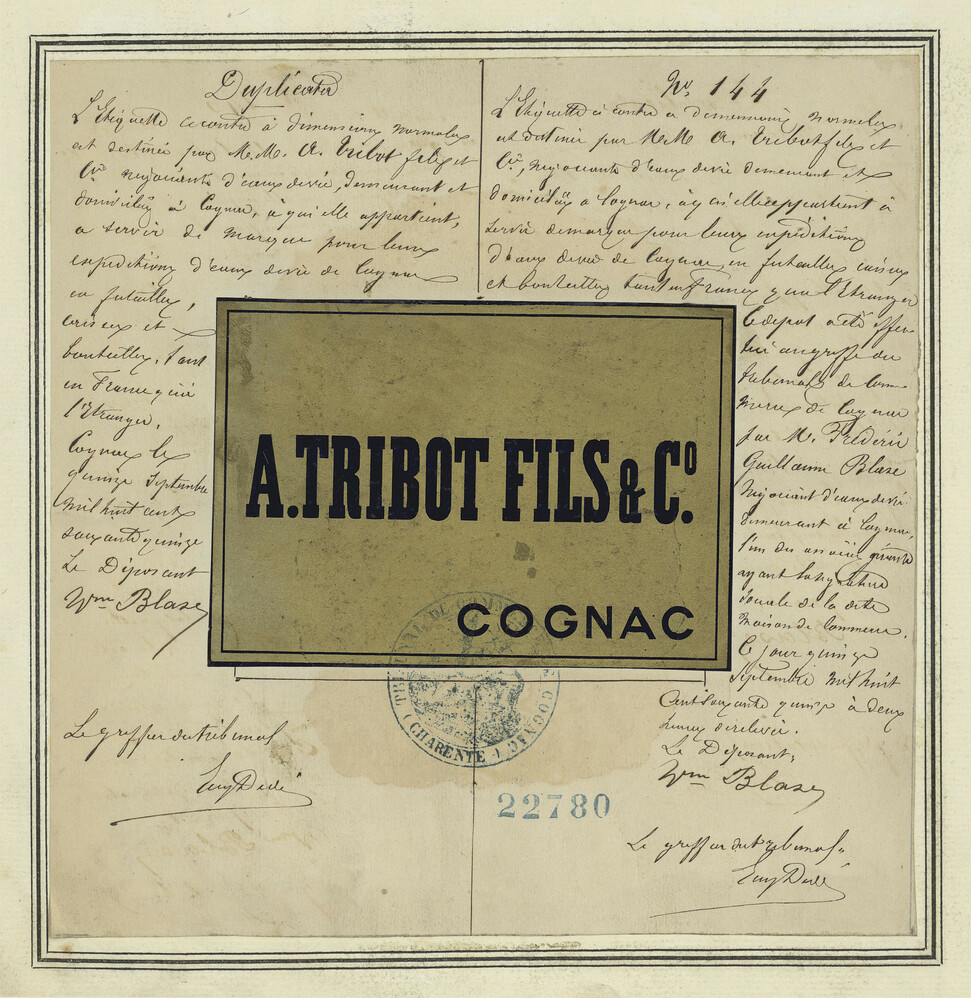 Duplicata
L'Etiquette ci contre à dimensions normales
est destinée par M.M. A. Tribot fils et
Cie négociants d'eaux de vie, demeurant et
domiciliés à Cognac, à qui elle appartient,
a servir de marque pour leurs
expéditions d'eaux de vie de Cognac
en futailles,
caisses et
bouteilles, tant
en France qu'à
l'Etranger.
Cognac le
quinze Septembre
mil huit cent
soixante quinze
Le Déposant
Wm Blase
Le greffier du tribunal
Eug Dedé
No 144
L'Etiquette ci contre a dimensions normales
est destinée par M.M. A. Tribot fils et
Cie, négociants d'eaux de vie demeurant et
domiciliés a Cognac, à qui elle appartient à
servir de marque pour leurs expéditions
d'eaux de vie de Cognac en futailles caisses
et bouteilles tant en France qu'a l'Etranger
Le depot a été effec
tué au greffe du
tribunal de Com-
merce de Cognac
par M. Frédéric
Guillaume Blase
négociant d'eaux de vie
demeurant à Cognac,
l'un des associés gérants
ayant la signature
sociale de la dite
maison de Commerce.
Ce jour quinze
Septembre mil huit
Cent soixante quinze à deux
heures de relevée.
Le Déposant,
Wm Blase
Le greffier du tribunal
Eug Dedé
A. TRIBOT FILS & Co.
COGNAC
TRIBUNAL DE COMMERCE DE COGNAC
(CHARENTE)
22780